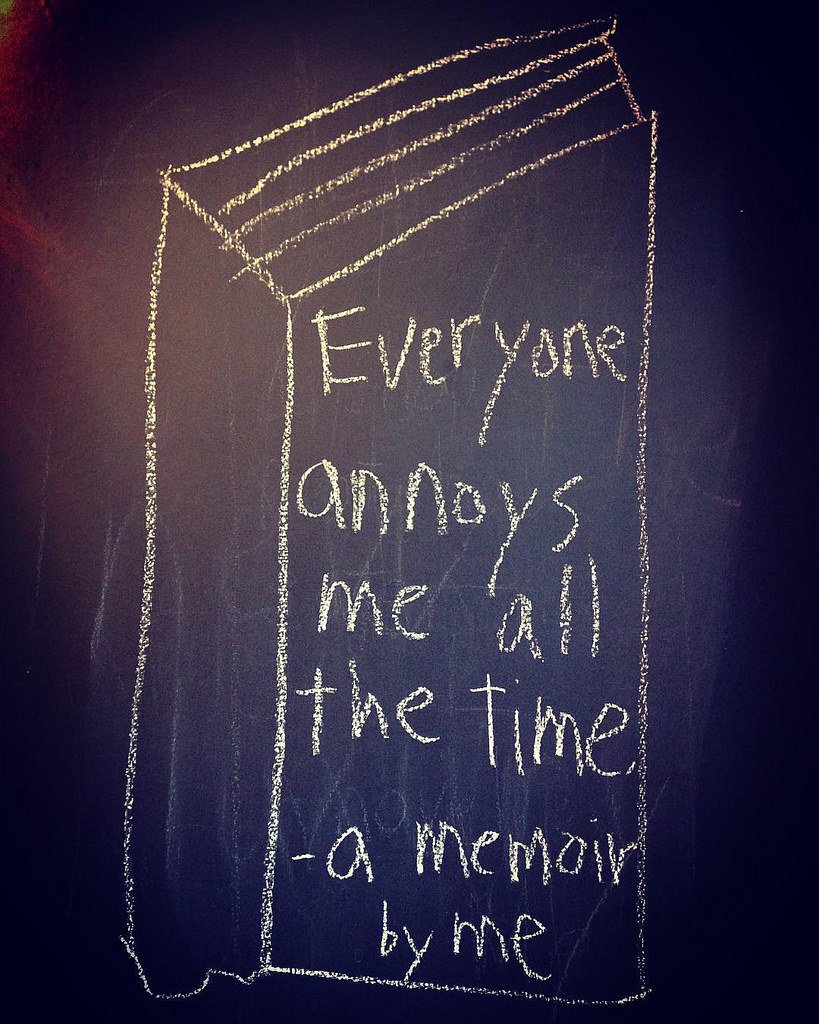 Everyone
annoys
me all
the time
-a memoir
by me